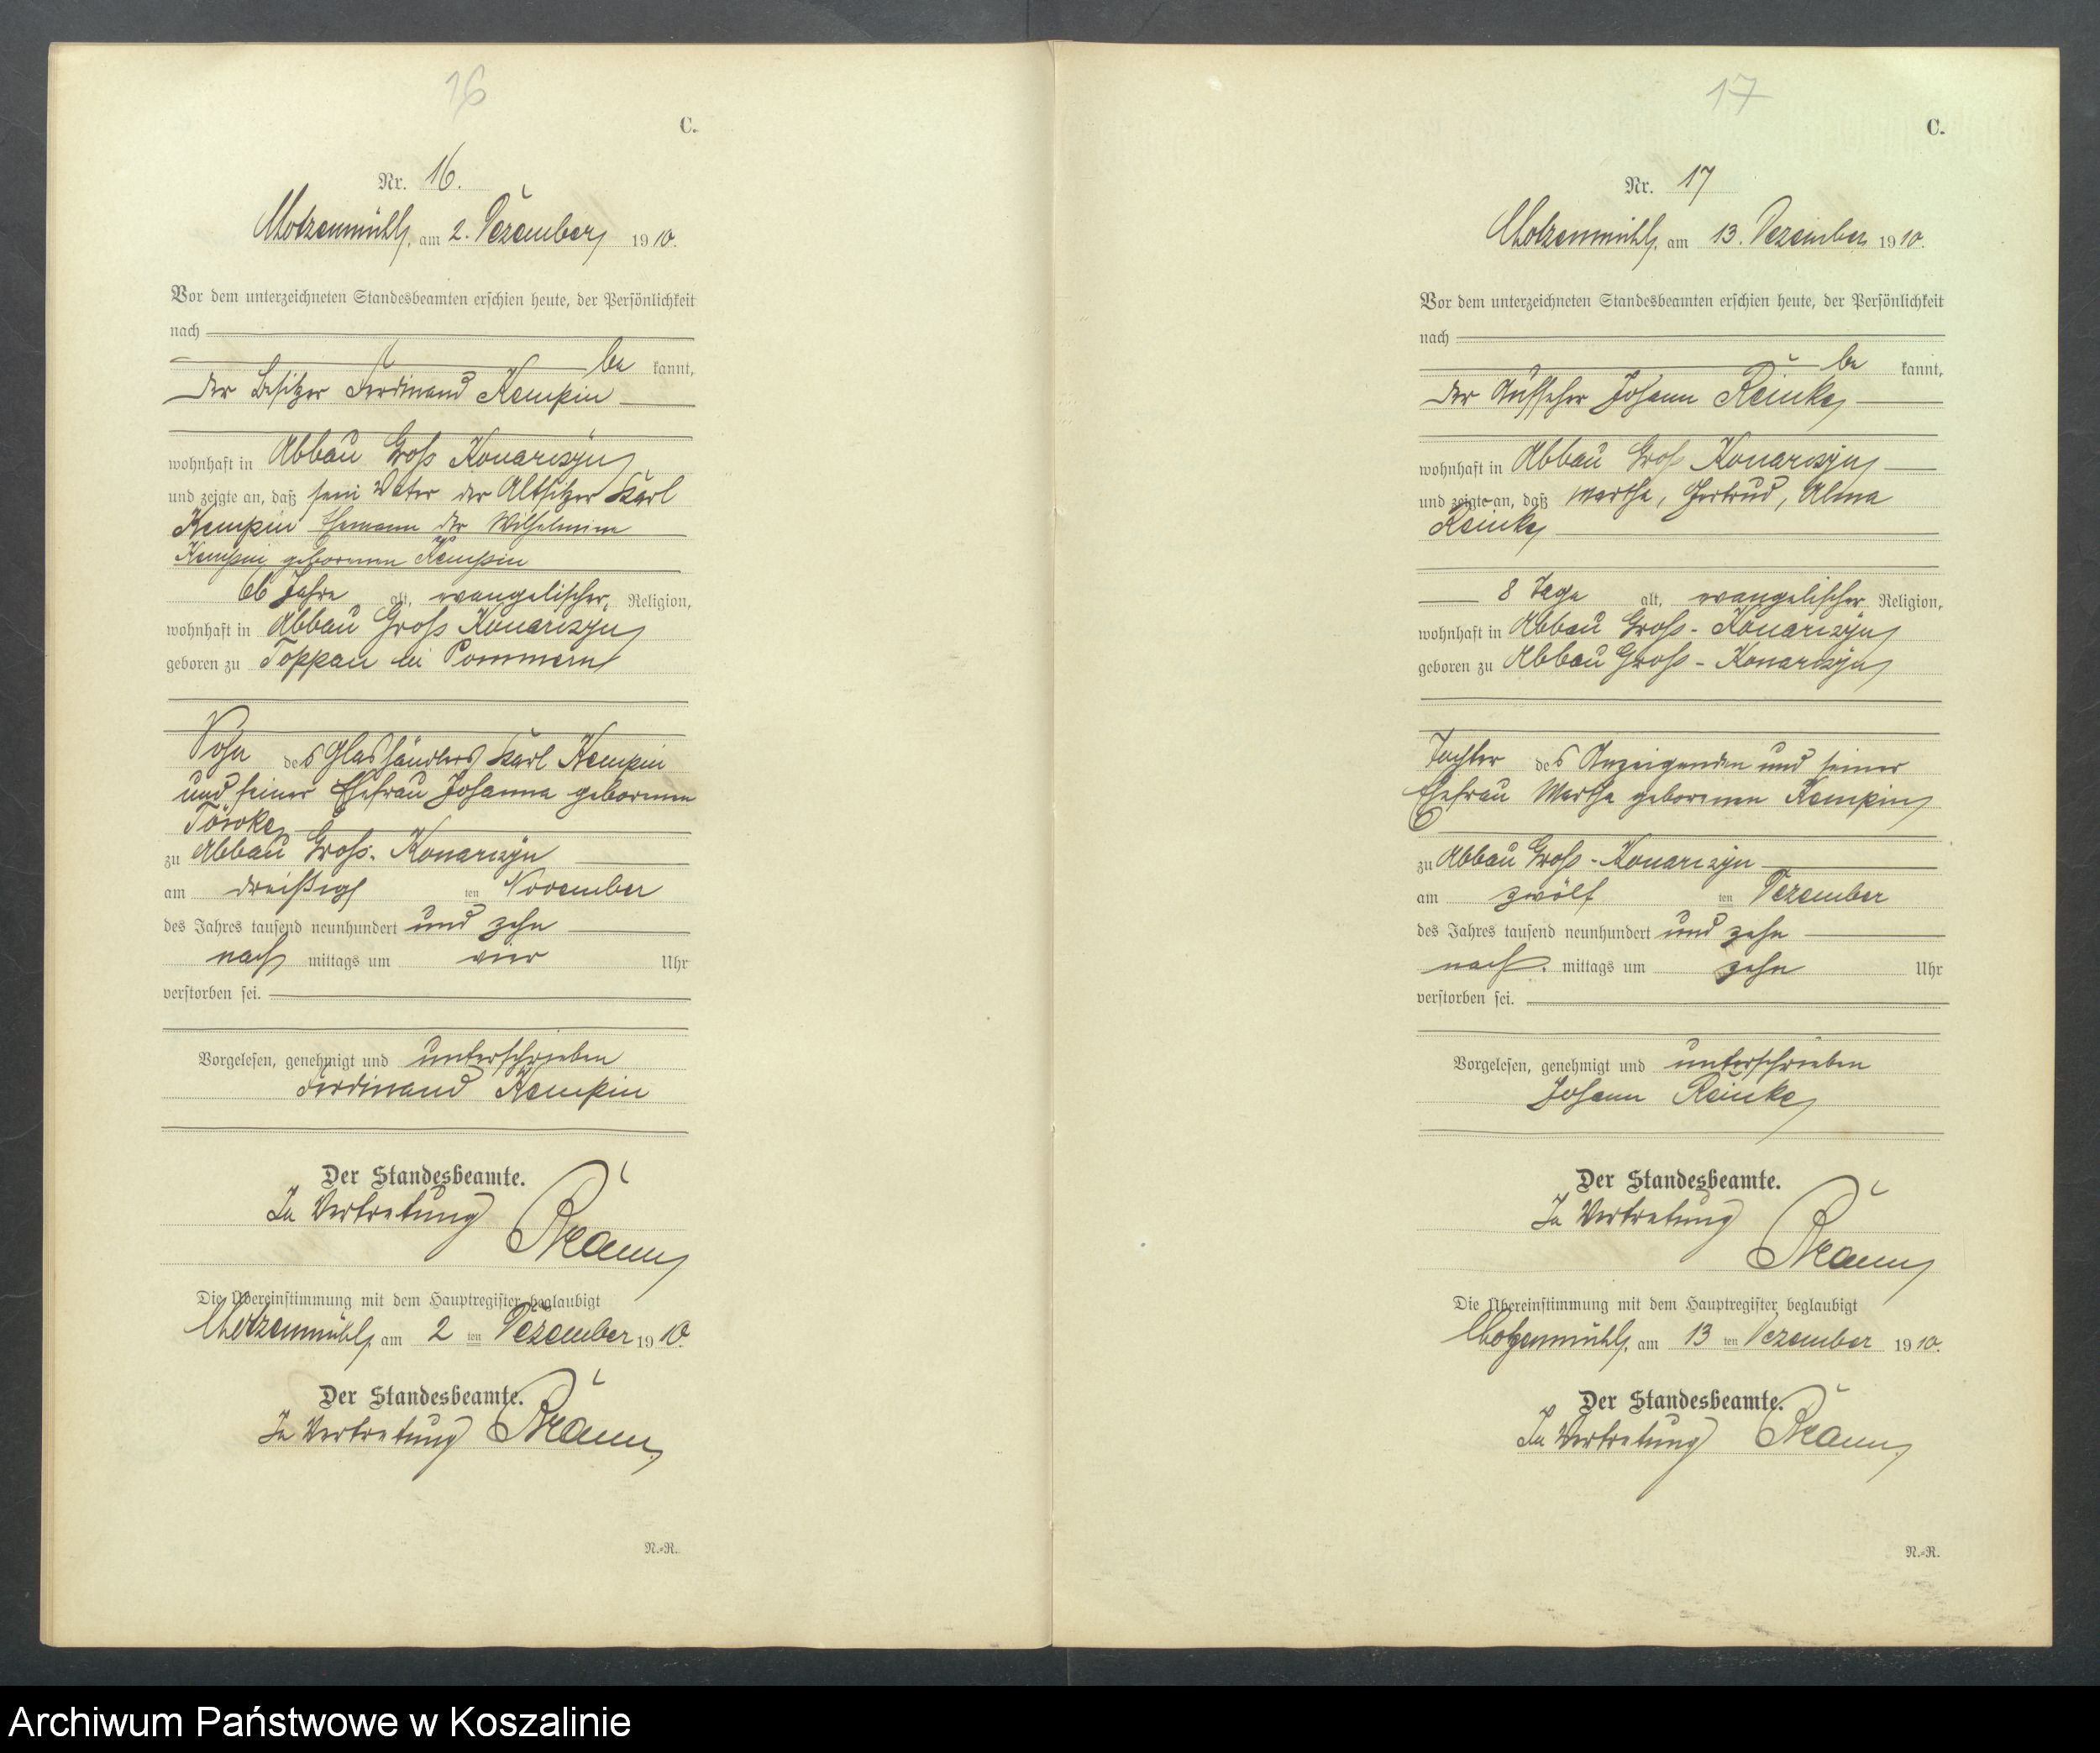 16
C.
Nr. 16.
Chotzenmühl, am 2. Dezember 1910.
Vor dem unterzeichneten Standesbeamten erschien heute, der Persönlichkeit
nach
be kannt,
der Besitzer Ferdinand Kempin
wohnhaft in Abbau Groß Konarczyn
und zeigte an, daß sein Vater der Altsitzer Karl
Kempin Ehemann der Wilhelmine
Kempin geborenen Kempin
66 Jahre alt, evangelischer, Religion,
wohnhaft in Abbau Groß Konarczyn
geboren zu Toppan in Pommern
Sohn des Glashändlers Karl Kempin
und seiner Ehefrau Johanna geborenen
zu Abbau Groß-Konarczyn
am dreißigst ten November
des Jahres tausend neunhundert und zehn
nach mittags um vier Uhr
verstorben sei.
Vorgelesen, genehmigt und unterschrieben
Ferdinand Kempin
Der Standesbeamte.
In Vertretung
Die Übereinstimmung mit dem Hauptregister beglaubigt
Chotzenmühl, am 2 ten Dezember 1910.
Der Standesbeamte.
In Vertretung
N.-R.
17
C.
Nr. 17
Chotzenmühl, am 13. Dezember 1910.
Vor dem unterzeichneten Standesbeamten erschien heute, der Persönlichkeit
nach
be kannt,
der Aufseher Johann Reinke
wohnhaft in Abbau Groß Konarczyn
und zeigte an, daß Martha, Gertrud, Alma
Reinke
8 Tage alt, evangelischer Religion,
wohnhaft in Abbau Groß-Konarczyn
geboren zu Abbau Groß-Konarczyn
Tochter des Anzeigenden und seiner
Ehefrau Martha geborenen Kempin
zu Abbau Groß-Konarczyn
am zwölf ten Dezember
des Jahres tausend neunhundert und zehn
nach mittags um zehn Uhr
verstorben sei.
Vorgelesen, genehmigt und unterschrieben
Johann Reinke
Der Standesbeamte.
In Vertretung
Die Übereinstimmung mit dem Hauptregister beglaubigt
Chotzenmühl, am 13 ten Dezember 1910.
Der Standesbeamte.
In Vertretung
N.-R.
Archiwum Państwowe w Koszalinie